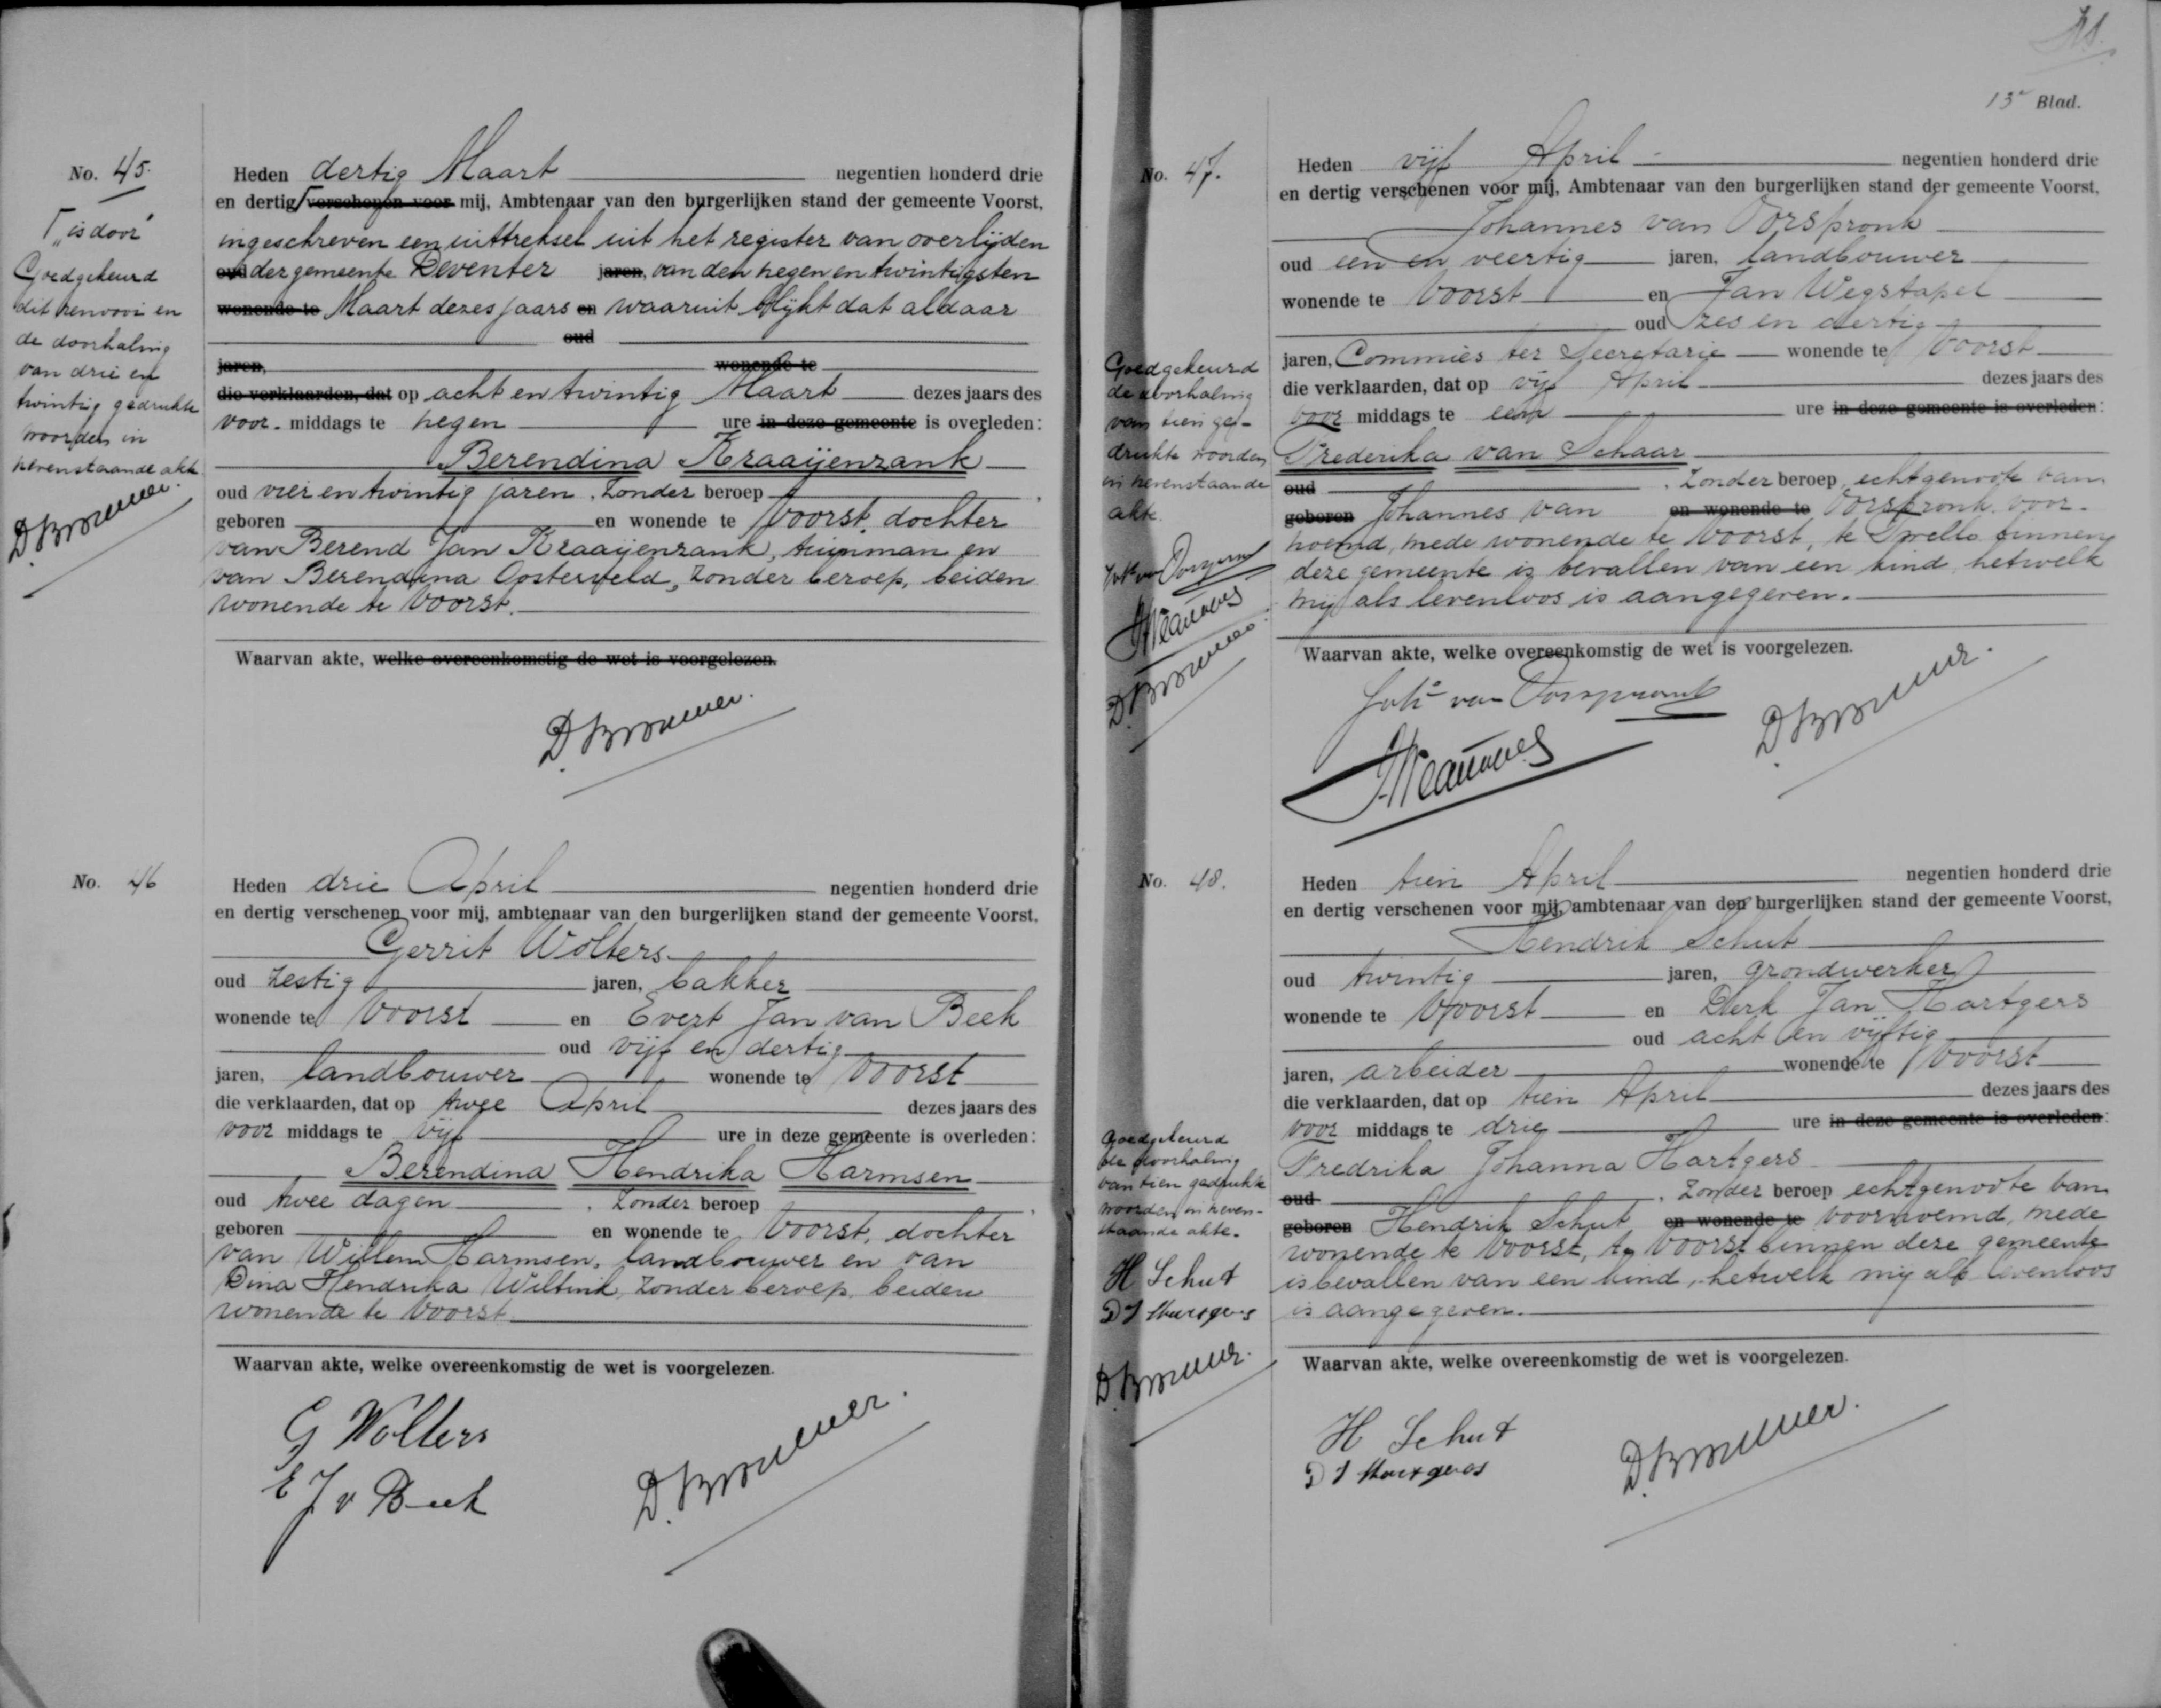 No. 45.
Heden dertig Maart negentien honderd drie
en dertig ⌈ verschenen voor mij, Ambtenaar van den burgerlijken stand der gemeente Voorst,
ingeschreven een uittreksel uit het register van overlijden
oud der gemeente Deventer jaren, van den negen en twintigsten
wonende te Maart dezes jaars en waaruit blijkt dat aldaar
oud
jaren, wonende te
die verklaarden, dat op acht en twintig Maart dezes jaars des
voor- middags te negen ure in deze gemeente is overleden:
Berendina Kraaijenzank
oud vier en twintig jaren. Zonder beroep
geboren en wonende te Voorst, dochter
van Berend Jan Kraaijenzank, tuinman en
van Berendina Oosterveld, zonder beroep, beiden
wonende te Voorst.
Waarvan akte, welke overeenkomstig de wet is voorgelezen.
D. Brommer.
⌈ „is door"
Goedgekeurd
dit renvooi en
de doorhaling
van drie en
twintig gedrukte
woorden in
nevenstaande akte
D. Brommer.
No. 46
Heden drie April negentien honderd drie
en dertig verschenen voor mij, ambtenaar van den burgerlijken stand der gemeente Voorst,
Gerrit Wolters
oud zestig jaren, bakker
wonende te Voorst en Evert Jan van Beek
oud vijf en dertig
jaren, landbouwer wonende te Voorst
die verklaarden, dat op twee April dezes jaars des
voor middags te vijf ure in deze gemeente is overleden:
Berendina Hendrika Harmsen
oud twee dagen. Zonder beroep
geboren en wonende te Voorst, dochter
van Willem Harmsen, landbouwer en van
Dina Hendrika Wiltink, zonder beroep, beiden
wonende te Voorst.
Waarvan akte, welke overeenkomstig de wet is voorgelezen.
G Wolters
E J v Beek
D. Brommer.
13e Blad.
No. 47.
Heden vijf April negentien honderd drie
en dertig verschenen voor mij, Ambtenaar van den burgerlijken stand der gemeente Voorst,
Johannes van Oorspronk
oud een en veertig jaren, landbouwer
wonende te Voorst en Jan Wegstapel
oud zes en dertig
jaren, Commies ter Secretarie wonende te Voorst
die verklaarden, dat op vijf April dezes jaars des
voor middags te een ure in deze gemeente is overleden:
Frederika van Schaar
oud. Zonder beroep, echtgenoote van
geboren Johannes van en wonende te Oorspronk voor-
noemd, mede wonende te Voorst, te Twello binnen
deze gemeente is bevallen van een kind, hetwelk
mij als levenloos is aangegeven.
Waarvan akte, welke overeenkomstig de wet is voorgelezen.
Joh's van Oorspronk
D. Brommer.
Goedgekeurd
de doorhaling
van tien ge-
drukte woorden
in nevenstaande
akte.
Joh's van Oorspronk
D. Brommer.
No. 48.
Heden tien April negentien honderd drie
en dertig verschenen voor mij, ambtenaar van den burgerlijken stand der gemeente Voorst,
Hendrik Schut
oud twintig jaren, grondwerker
wonende te Voorst en Derk Jan Hartgers
oud acht en vijftig
jaren, arbeider wonende te Voorst
die verklaarden, dat op tien April dezes jaars des
voor middags te drie ure in deze gemeente is overleden:
Fredrika Johanna Hartgers
oud. Zonder beroep echtgenoote van
geboren Hendrik Schut en wonende te voornoemd, mede
wonende te Voorst, te Voorst binnen deze gemeente
is bevallen van een kind, hetwelk mij als levenloos
is aangegeven.
Waarvan akte, welke overeenkomstig de wet is voorgelezen.
H Schut
D J Hartgers
D. Brommer.
Goedgekeurd
de doorhaling
van tien gedrukte
woorden in neven-
staande akte.
H Schut
D J Hartgers
D. Brommer.